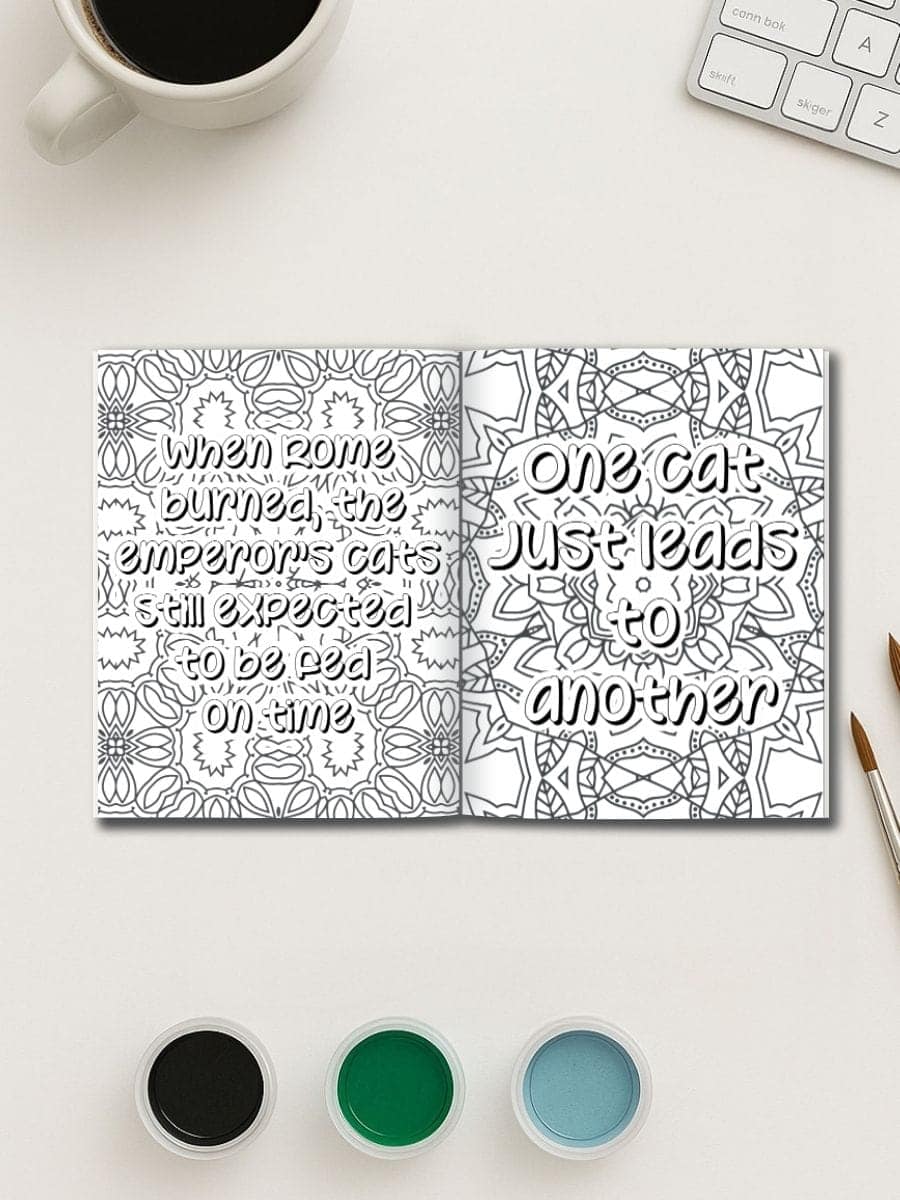 cann bok
A
skift
skiger
Z
When Rome
burned, the
emperor's cats
still expected
to be fed
on time
One cat
Just leads
to
another